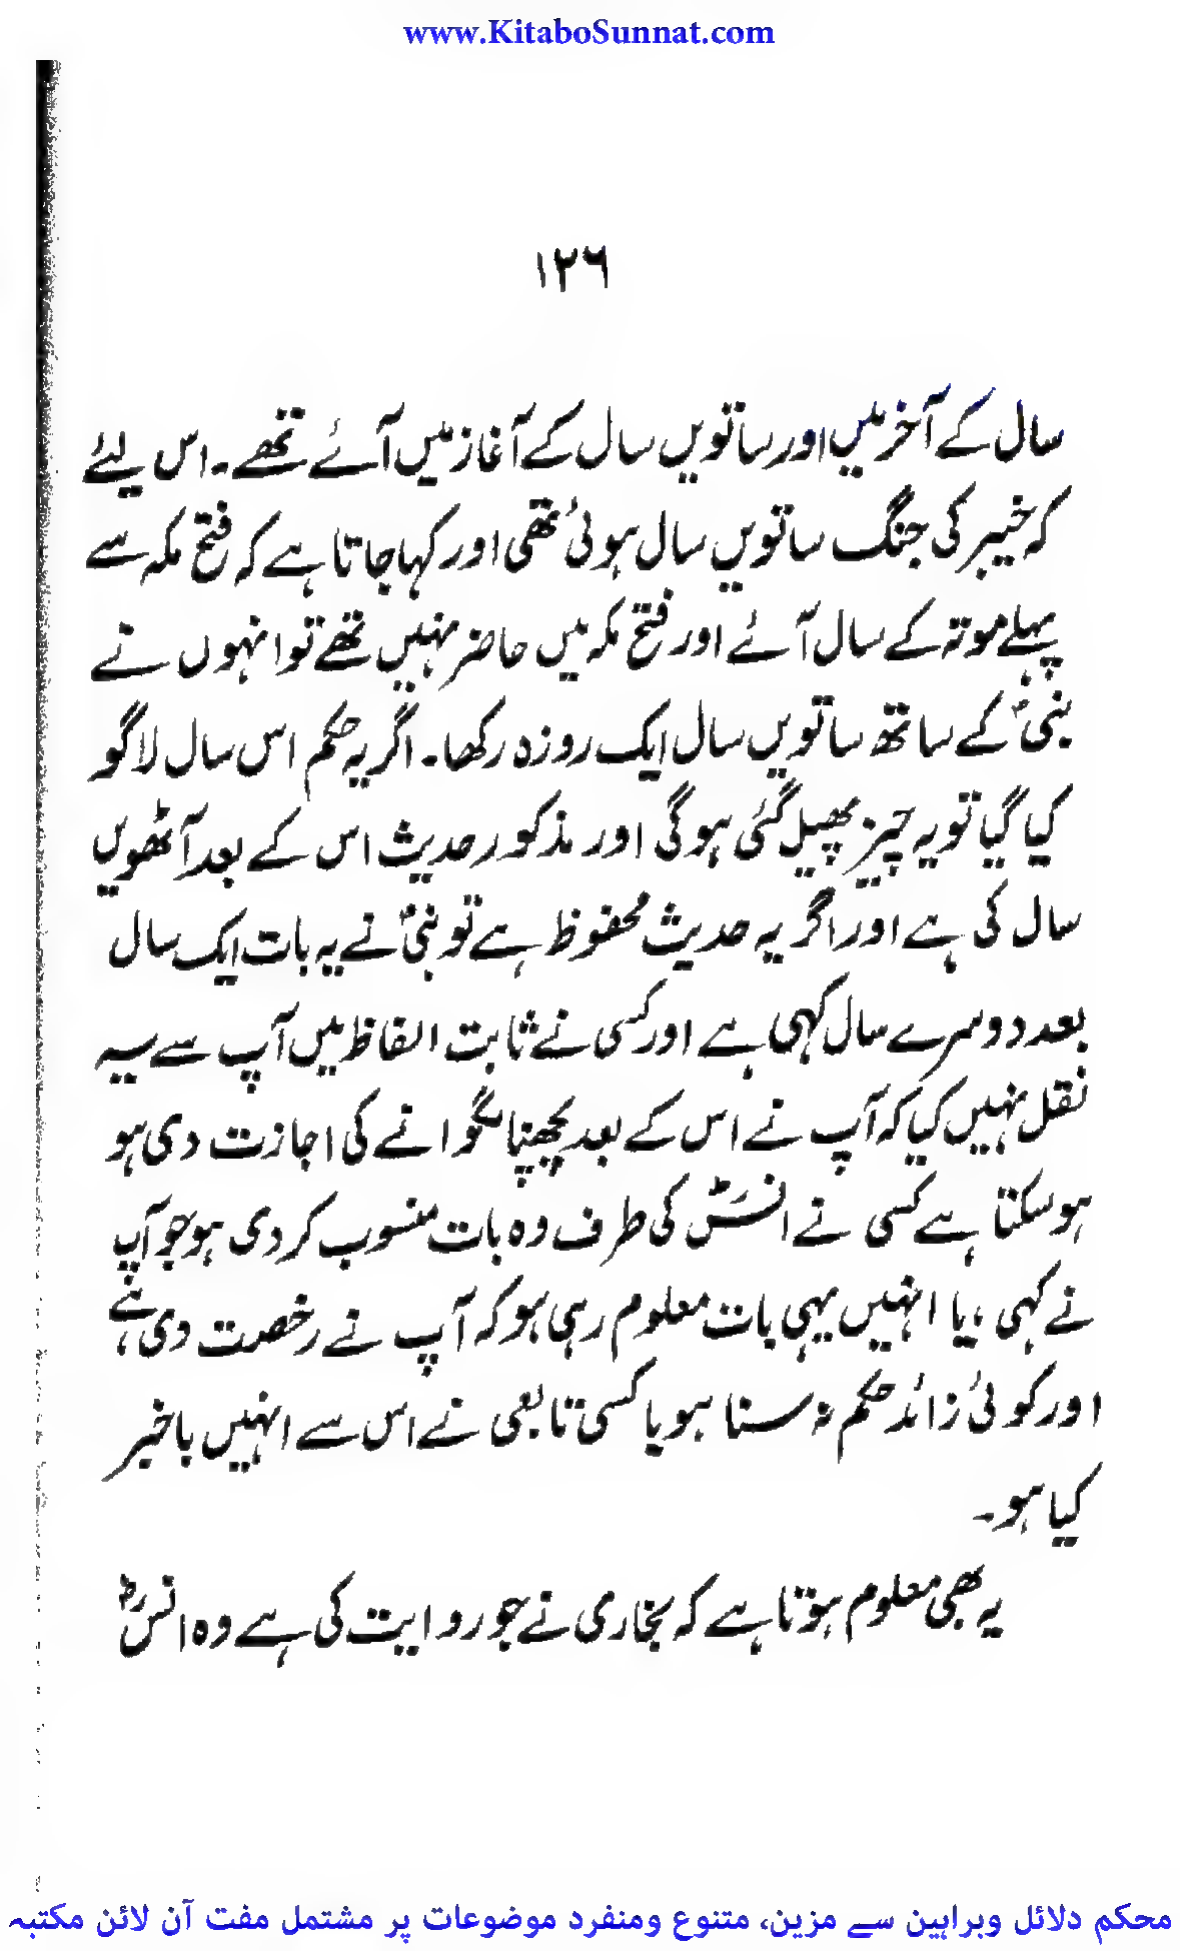 www.KitaboSunnat.com
١٢٦
سال کے آخر میں اور ساتویں سال کے آغاز میں آئے تھے۔ اس لیئے
کہ خیبر کی جنگ ساتویں سال ہوئی تھی اور کہا جاتا ہے کہ فتح مکہ سے
پہلے موتہ کے سال آئے اور فتح مکہ میں حاضر نہیں تھے تو انہوں نے
نبیؐ کے ساتھ ساتویں سال ایک روزہ رکھا۔ اگر یہ حکم اس سال لاگو
کیا گیا تو یہ چیز پھیل گئی ہوگی اور مذکور حدیث اس کے بعد آٹھویں
سال کی ہے اور اگر یہ حدیث محفوظ ہے تو نبیؐ نے یہ بات ایک سال
بعد دوسرے سال کہی ہے اور کسی نے ثابت الفاظ میں آپ سے یہ
نقل نہیں کیا کہ آپ نے اس کے بعد پچھنا لگوانے کی اجازت دی ہو
ہو سکتا ہے کسی نے انسؓ کی طرف وہ بات منسوب کر دی ہو جو آپ
نے کہی، یا انہیں یہی بات معلوم رہی ہو کہ آپ نے رخصت دی ہے
اور کوئی زائد حکم نہ سنا ہو یا کسی تابعی نے اس سے انہیں باخبر
کیا ہو۔
یہ بھی معلوم ہوتا ہے کہ بخاری نے جو روایت کی ہے وہ انسؓ
محکم دلائل وبراہین سے مزین، متنوع ومنفرد موضوعات پر مشتمل مفت آن لائن مکتبہ